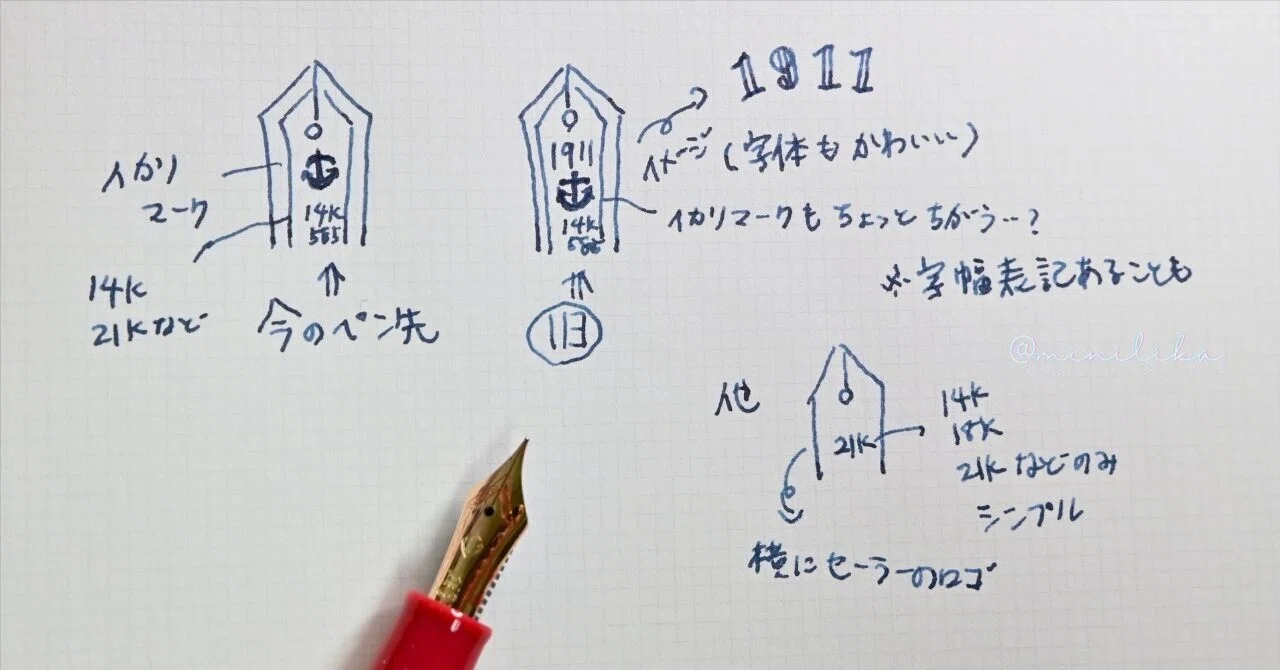 イカリ
マーク
14K
585
14K
21Kなど
今のペン先
1911
14K
585
旧
1911
イメージ(字体もかわいい)
イカリマークもちょっとちがう…?
※字幅表記あることも
@minilika
他
21K
14K
18K
21Kなどのみ
シンプル
横にセーラーのロゴ